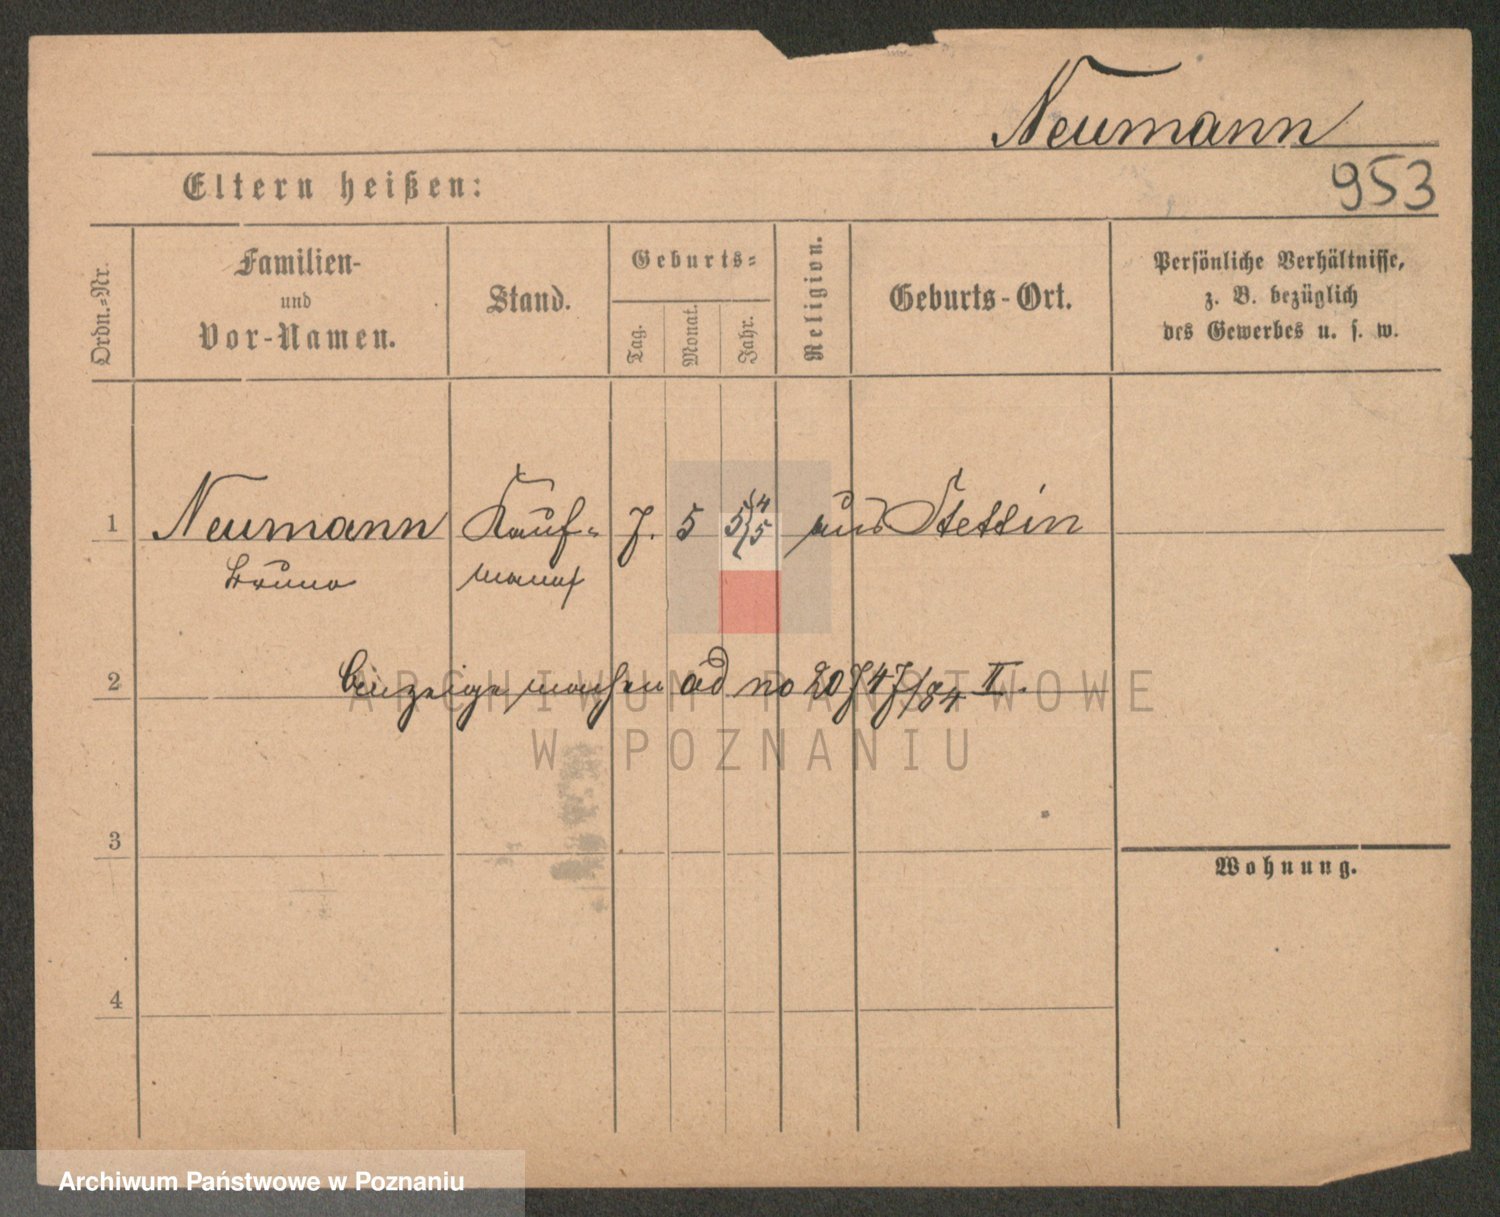 Neumann
Eltern heißen:
953
Ordn.-Nr.
Familien-
und
Vor-Namen.
Stand.
Geburts-
Tag.
Monat.
Jahr.
Religion.
Geburts-Ort.
Persönliche Verhältnisse,
z. B. bezüglich
des Gewerbes u. s. w.
1
Neumann
Bruno
Kauf-
mann
7. 5
54
55
aus Stettin
2
Anzeige machen ad no 20747/84 II.
ARCHIWUM PAŃSTWOWE
W POZNANIU
3
Wohnung.
4
Archiwum Państwowe w Poznaniu